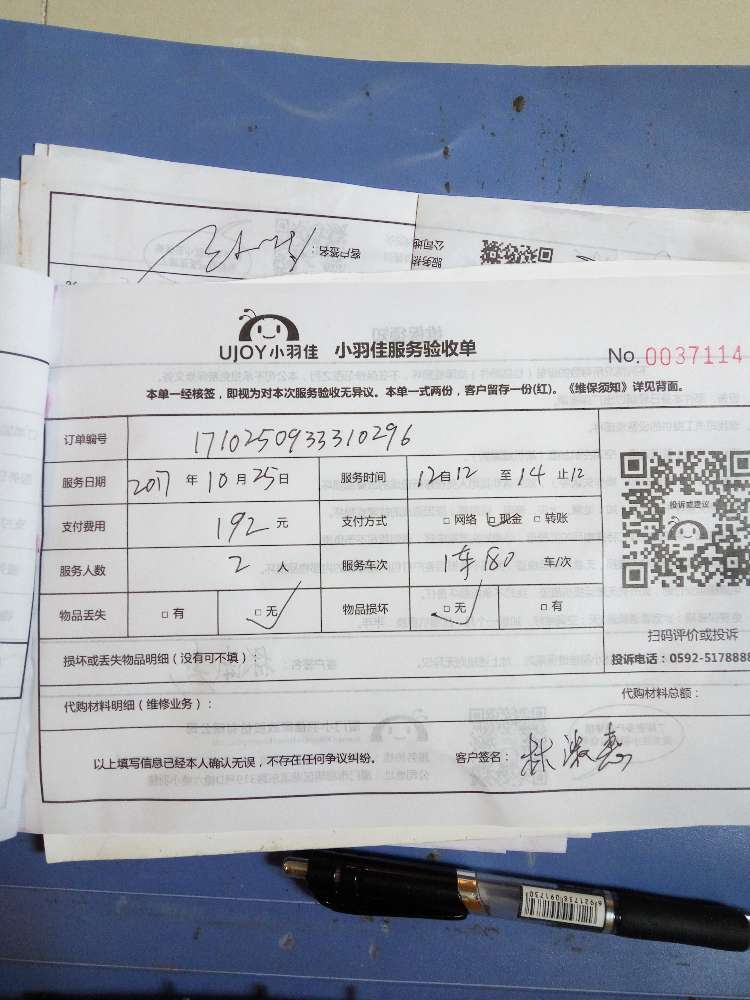 客户签名：
公司地
服务热
UJOY小羽佳 小羽佳服务验收单
No. 0037114
本单一经核签，即视为对本次服务验收无异议。本单一式两份，客户留存一份(红)。《维保须知》详见背面。
订单编号 1710250933310296
服务日期 2017 年 10 月 25 日 服务时间 12自12 至 14 止12
支付费用 192 元 支付方式 □ 网络 □ 现金 □ 转账
投诉或建议
服务人数 2 人 服务车次 1车180 车/次
物品丢失 □ 有 □ 无 物品损坏 □ 无 □ 有
扫码评价或投诉
投诉电话：0592-5178888
损坏或丢失物品明细（没有可不填）：
代购材料明细（维修业务）： 代购材料总额：
以上填写信息已经本人确认无误，不存在任何争议纠纷。 客户签名： 林淑惠
6921738091730